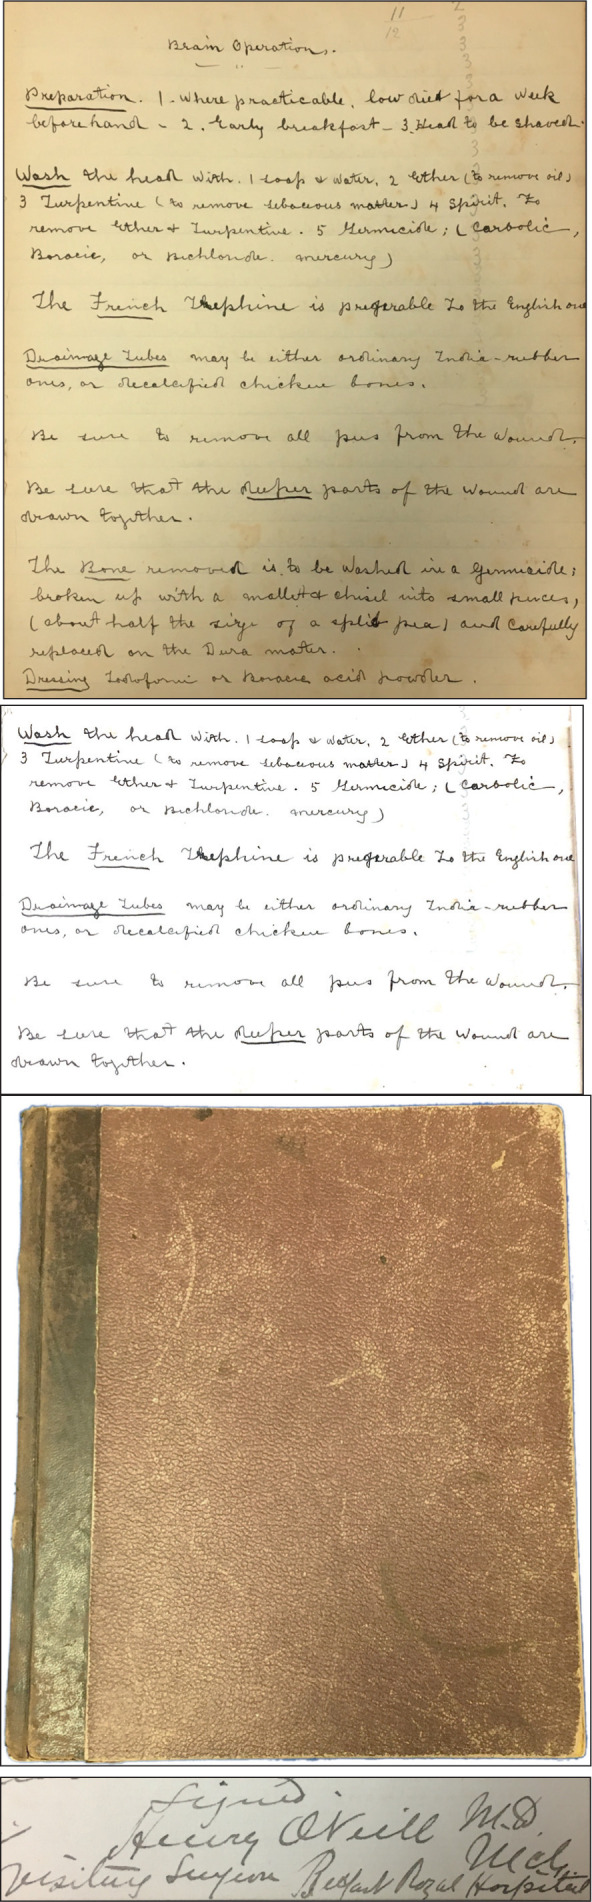 11
12
2
3
3
3
3
3
3
Brain Operations.
Preparation. 1 - Where practicable, low diet for a week
beforehand - 2. Early breakfast - 3. Head to be shaved.
Wash the head with. 1 soap & water, 2 Ether (to remove oil)
3 Turpentine (to remove sebaceous matter) 4 Spirit. To
remove Ether & Turpentine. 5 Germicide; (Carbolic,
Boracic, or Bichloride. mercury)
The French Trephine is preferable to the English one
Drainage Tubes may be either ordinary India-rubber
ones, or decalcified chicken bones.
Be sure to remove all pus from the wound.
Be sure that the deeper parts of the wound are
drawn together.
The Bone removed is to be washed in a germicide;
broken up with a mallet & chisel into small pieces,
(about half the size of a split pea) and carefully
replaced on the Dura mater.
Dressing Iodoform or Boracic acid powder.
Wash the head with. 1 soap & water, 2 Ether (to remove oil)
3 Turpentine (to remove sebaceous matter) 4 Spirit. To
remove Ether & Turpentine. 5 Germicide; (Carbolic,
Boracic, or Bichloride. mercury)
The French Trephine is preferable to the English one
Drainage Tubes may be either ordinary India-rubber
ones, or decalcified chicken bones.
Be sure to remove all pus from the wound.
Be sure that the deeper parts of the wound are
drawn together.
Signed
Henry O'Neill M.D.
M.Ch.
Visiting Surgeon Belfast Royal Hospital